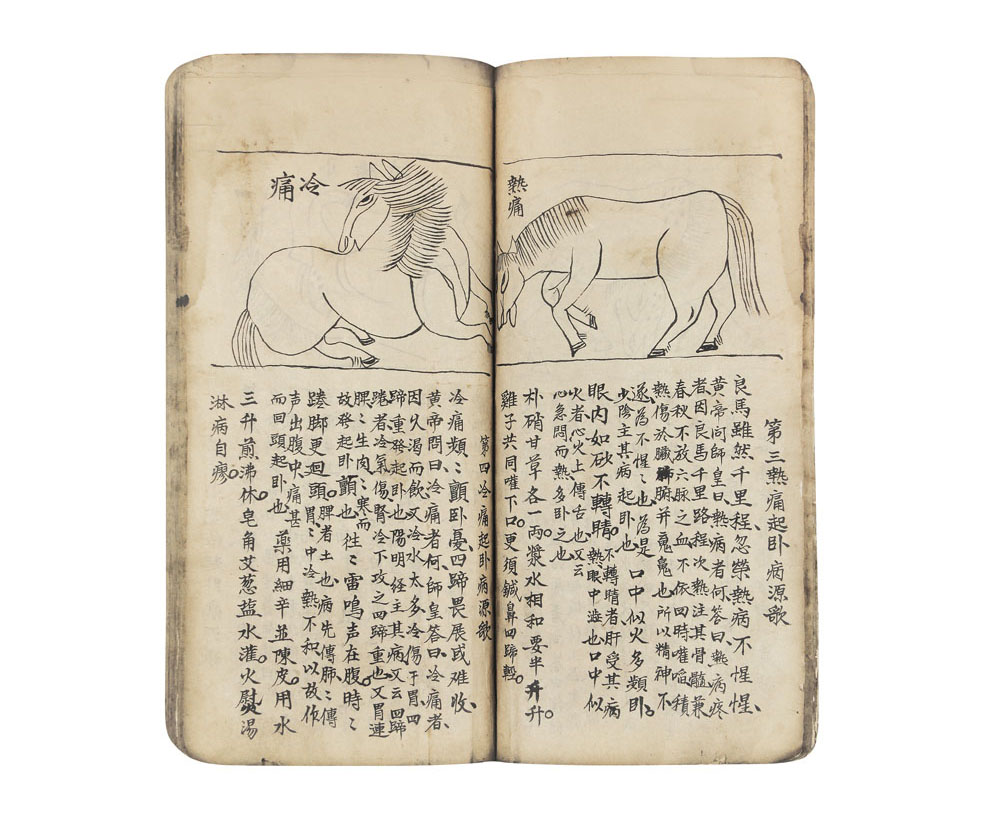 熱痛
第三熱痛起卧病源歌
良馬雖然千里程忽縈熱病不惺惺
黄帝问師皇曰熱病者何答曰熱病疼
者因良馬千里路程次熱注其骨髓兼
春秋不放六脉之血不依四時嚾啗積
熱傷於臟腑并鬼魂也所以精神不
遂為不惺〻也為是口中似火多頻卧
少陰主其病起卧也
眼内如砂不轉睛不轉睛者肝受其病
熱眼中澁也口中似
火者心火上傳舌也又云
心急悶而熱多卧之也
朴硝甘草各一兩漿水相和要半升升
雞子共同嚾下口更須鍼鼻四蹄輕
冷痛
第四冷痛起卧病源歌
冷痛頻〻顫卧憂四蹄畏展或难收
黄帝問曰冷痛者何師皇答曰冷痛者
因久渴而飲又冷水太多冷傷于胃四
蹄重發起卧也陽明经主其病又云四蹄
踡者冷氣傷腎冷下攻之四蹄重也又胃連
脾〻生肉〻寒而往〻雷鳴声在腹時〻
故發起卧顫也
踡脚更迴頭脾者土也病先傳肺〻傳
胃〻中冷熱不和以故作
声出腹中痛甚
而回頭起卧也藥用細辛並陳皮用水
三升煎沸休皂角艾葱盐水灌火熨煲湯
淋病自瘳